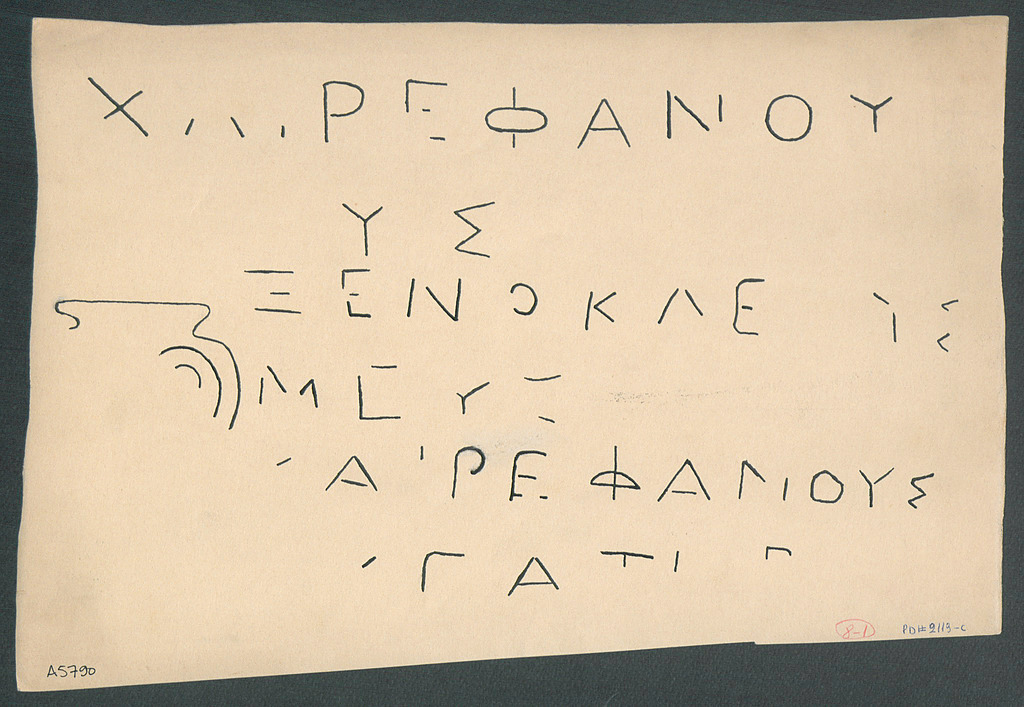 ΧΑΙΡΕΦΑΝΟΥ
ΥΣ
ΞΕΝΟΚΛΕ ΥΣ
ΑΙΡΕΦΑΝΟΥΣ
ΓΑΤ
8-1 PD# 2113-c
A5790